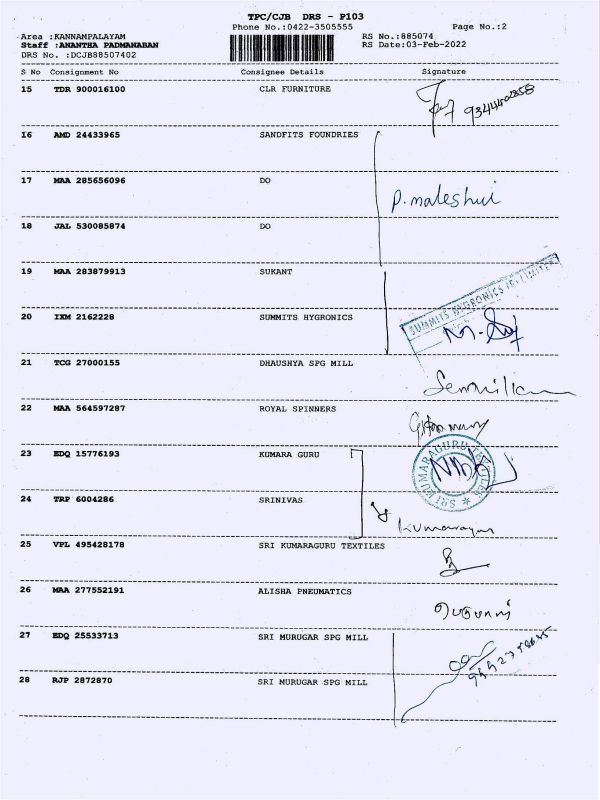 TPC/CJB DRS - P103
Phone No.:0422-3505555 Page No.:2
Area :KANNAMPALAYAM RS No.:885074
Staff :ANANTHA PADMANABAN RS Date:03-Feb-2022
DRS No. :DCJB88507402
S No Consignment No Consignee Details Signature
15 TDR 900016100 CLR FURNITURE
16 AMD 24433965 SANDFITS FOUNDRIES
17 MAA 285656096 DO
P. maleshwi
18 JAL 530085874 DO
19 MAA 283879913 SUKANT
20 IXM 2162228 SUMMITS HYGRONICS
SUMMITS HYGRONICS (P) LIMITED
21 TCG 27000155 DHAUSHYA SPG MILL
22 MAA 564597287 ROYAL SPINNERS
23 EDQ 15776193 KUMARA GURU
SRI KUMARAGURU TEXTILES
24 TRP 6004286 SRINIVAS
25 VPL 495428178 SRI KUMARAGURU TEXTILES
26 MAA 277552191 ALISHA PNEUMATICS
27 EDQ 25533713 SRI MURUGAR SPG MILL
28 RJP 2872870 SRI MURUGAR SPG MILL